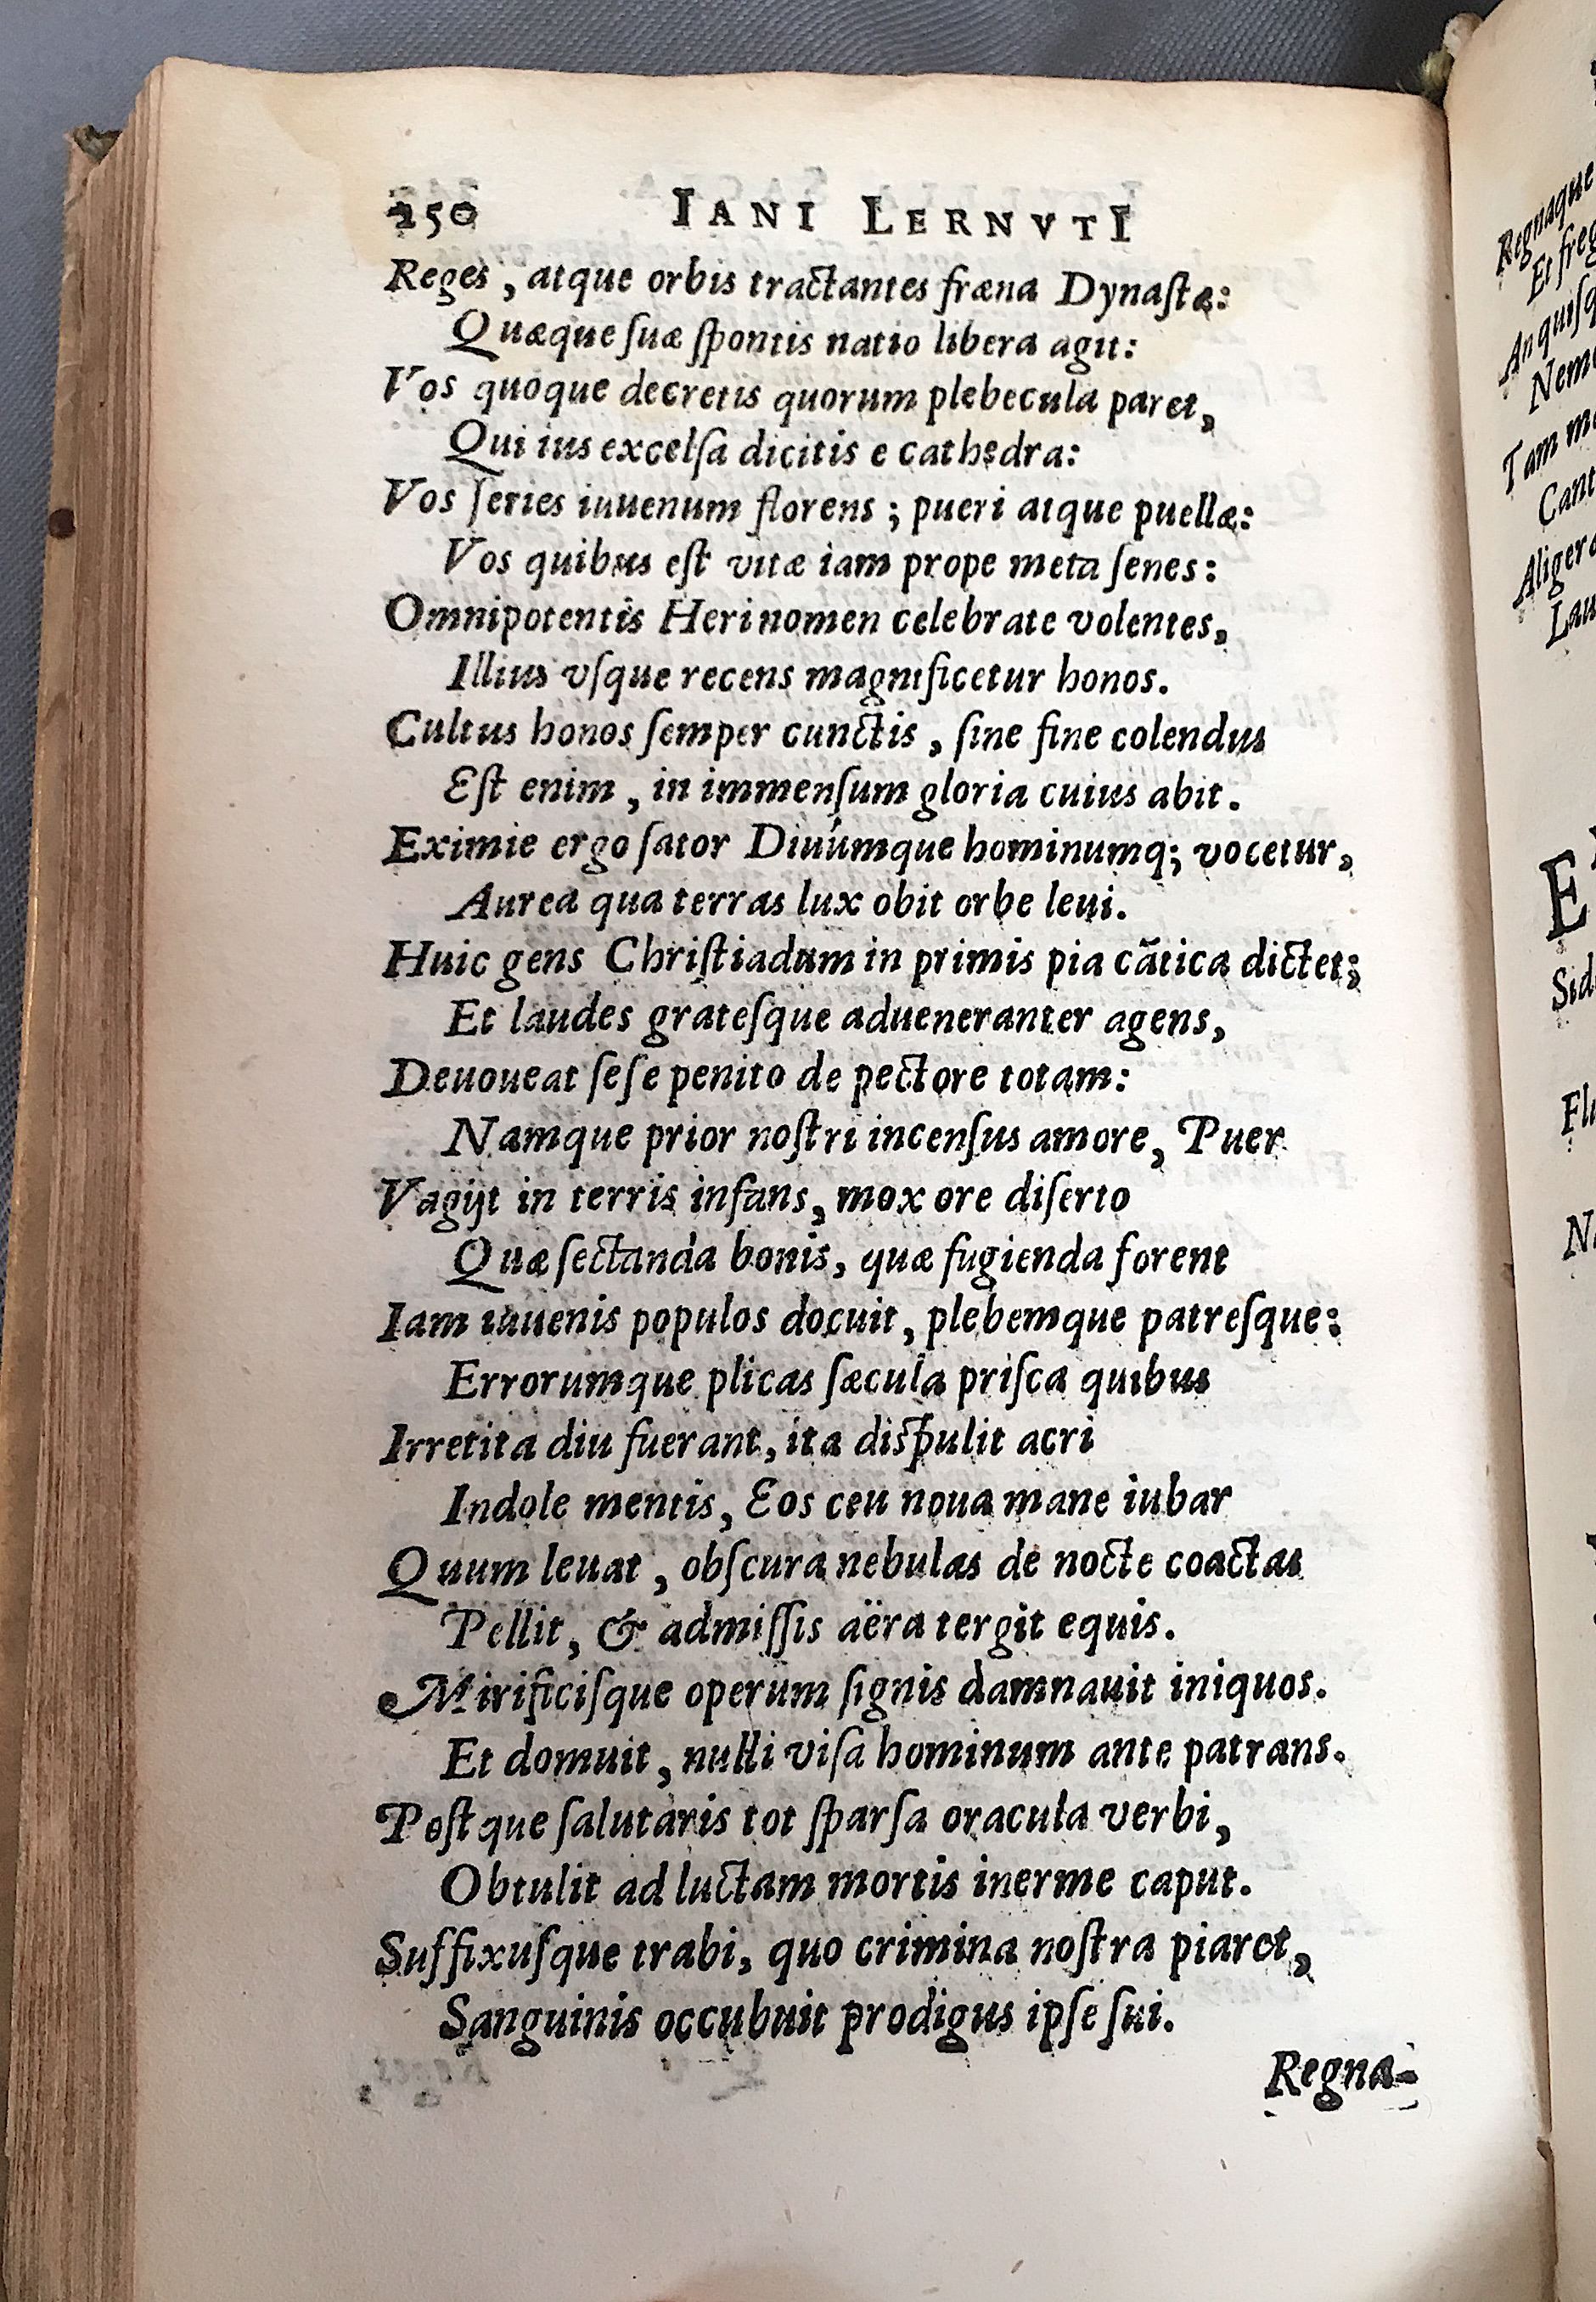 250 IANI LERNVTI
Reges, atque orbis tractantes fræna Dynaſtæ:
Quæque ſuæ ſpontis natio libera agit:
Vos quoque decretis quorum plebecula paret,
Qui ius excelſa dicitis e cathedra:
Vos ſeries iuuenum florens; pueri atque puellæ:
Vos quibus eſt vitæ iam prope meta ſenes:
Omnipotentis Heri nomen celebrate volentes,
Illius vſque recens magnificetur honos.
Cultus honos ſemper cunctis, ſine fine colendus
Eſt enim, in immenſum gloria cuius abit.
Eximie ergo ſator Diuúmque hominumq; vocetur,
Aurea qua terras lux obit orbe leui.
Huic gens Chriſtiadum in primis pia cãtica dictet;
Et laudes grateſque adueneranter agens,
Deuoueat ſeſe penito de pectore totam:
Namque prior noſtri incenſus amore, Puer
Vagijt in terris infans, mox ore diſerto
Quæ ſectanda bonis, quæ fugienda forent
Iam iuuenis populos docuit, plebemque patreſque:
Errorumque plicas ſæcula priſca quibus
Irretita diu fuerant, ita diſpulit acri
Indole mentis, Eos ceu noua mane iubar
Quum leuat, obſcura nebulas de nocte coactas
Pellit, & admiſſis aëra tergit equis.
Mirificiſque operum ſignis damnauit iniquos.
Et domuit, nulli viſa hominum ante patrans.
Poſtque ſalutaris tot ſparſa oracula verbi,
Obtulit ad luctam mortis inerme caput.
Suffixuſque trabi, quo crimina noſtra piaret,
Sanguinis occubuit prodigus ipſe ſui.
Regna-
Regnaque
Et freg
An quiſq
Nem
Tam m
Cant
Aliger
Lau
E
Sid
Fl
N